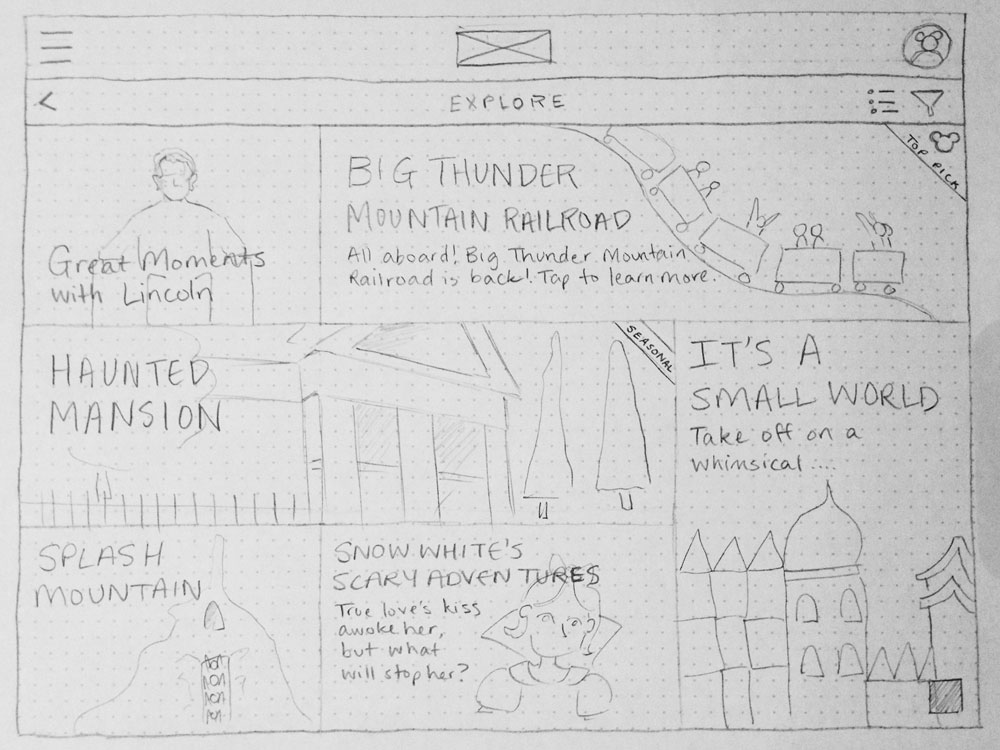 EXPLORE
Great Moments
with Lincoln
BIG THUNDER
MOUNTAIN RAILROAD
All aboard! Big Thunder Mountain
Railroad is back! Tap to learn more.
TOP PICK
HAUNTED
MANSION
SEASONAL
IT'S A
SMALL WORLD
Take off on a
whimsical....
SPLASH
MOUNTAIN
SNOW WHITE'S
SCARY ADVENTURES
True love's kiss
awoke her,
but what
will stop her?